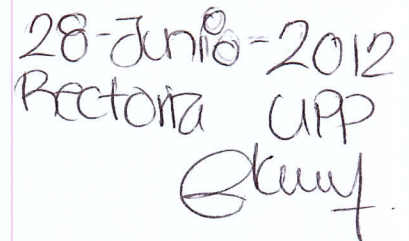 28-Junio-2012
Rectoria UPP